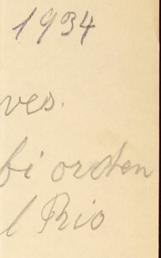 1934
ves.
bi orden
l Rio